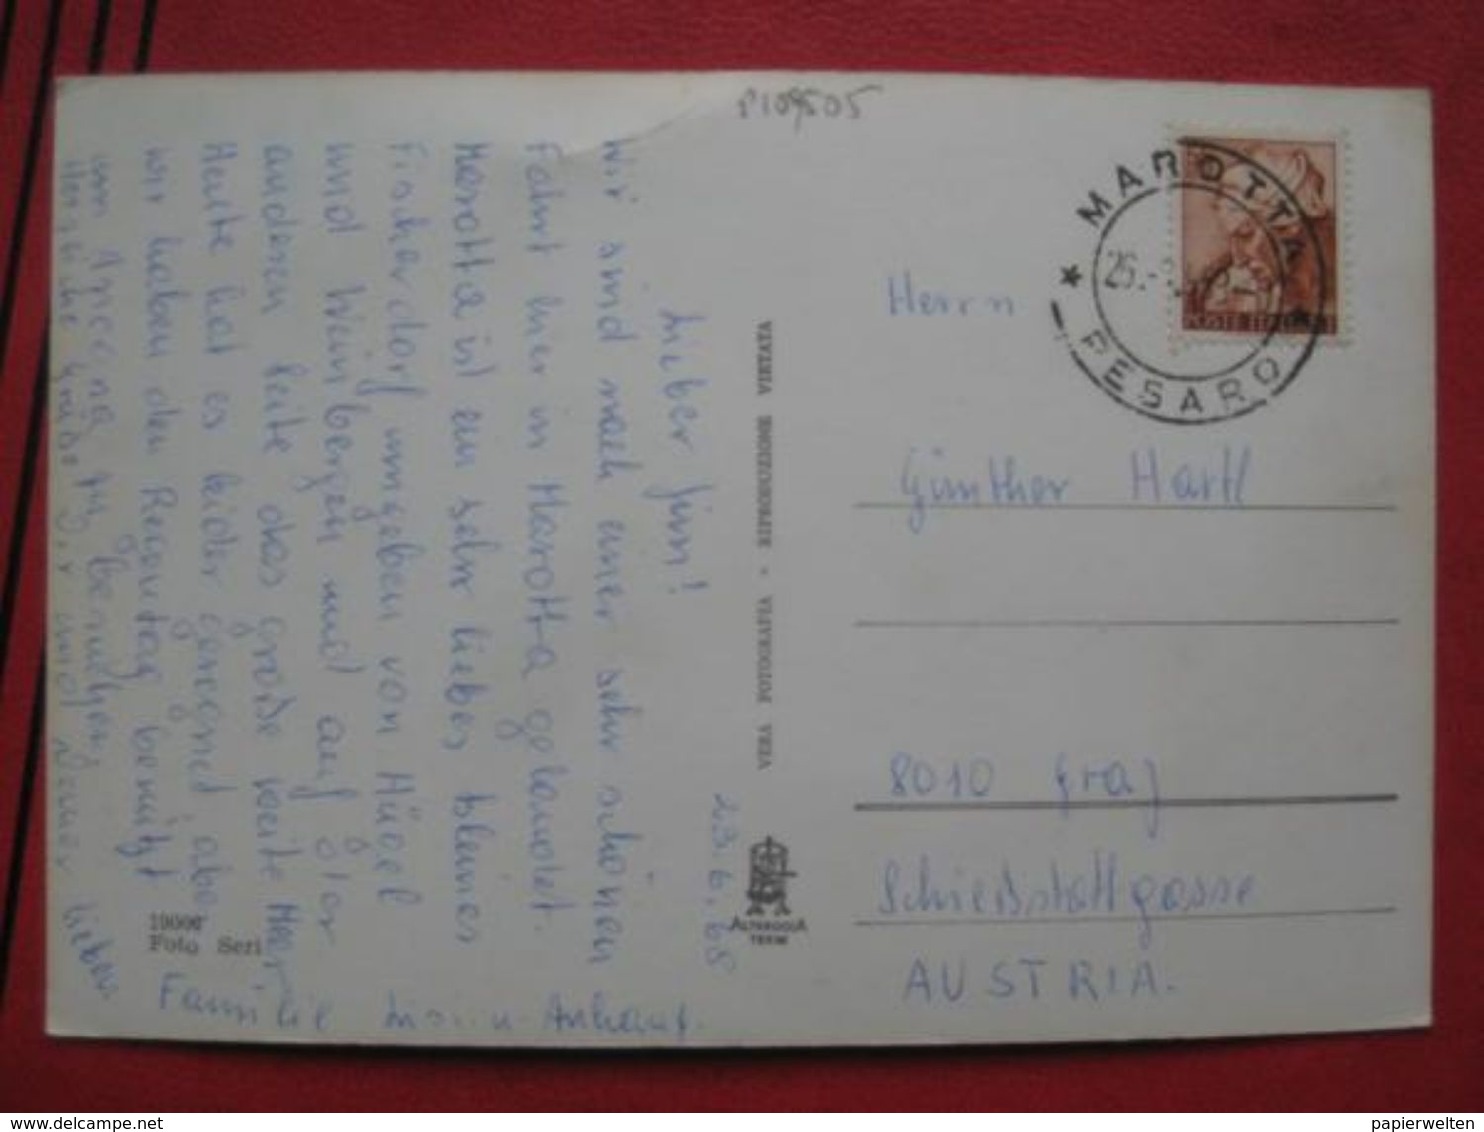 P109505
23.6.68
Lieber Jim!
Wir sind nach einer sehr schönen
Fahrt hier in Marotta gelandet.
Marotta ist ein sehr liebes kleines
Fischerdorf umgeben von Hügel
und Weinbergen und auf der
anderen Seite das große weite Meer
Heute hat es leider geregnet aber
wir haben den Regentag benützt
um Ancona zu besuchen.
Herzliche Grüße Dir und Deiner lieben
Familie
VERA FOTOGRAFIA - RIPRODUZIONE VIETATA
ALTEROCCA
TERNI
19006
Foto Seri
MAROTTA
PESARO
Herrn
Günther Hartl
8010 Graz
Schießstattgasse
AUSTRIA.
papierwelten
delcampe.net